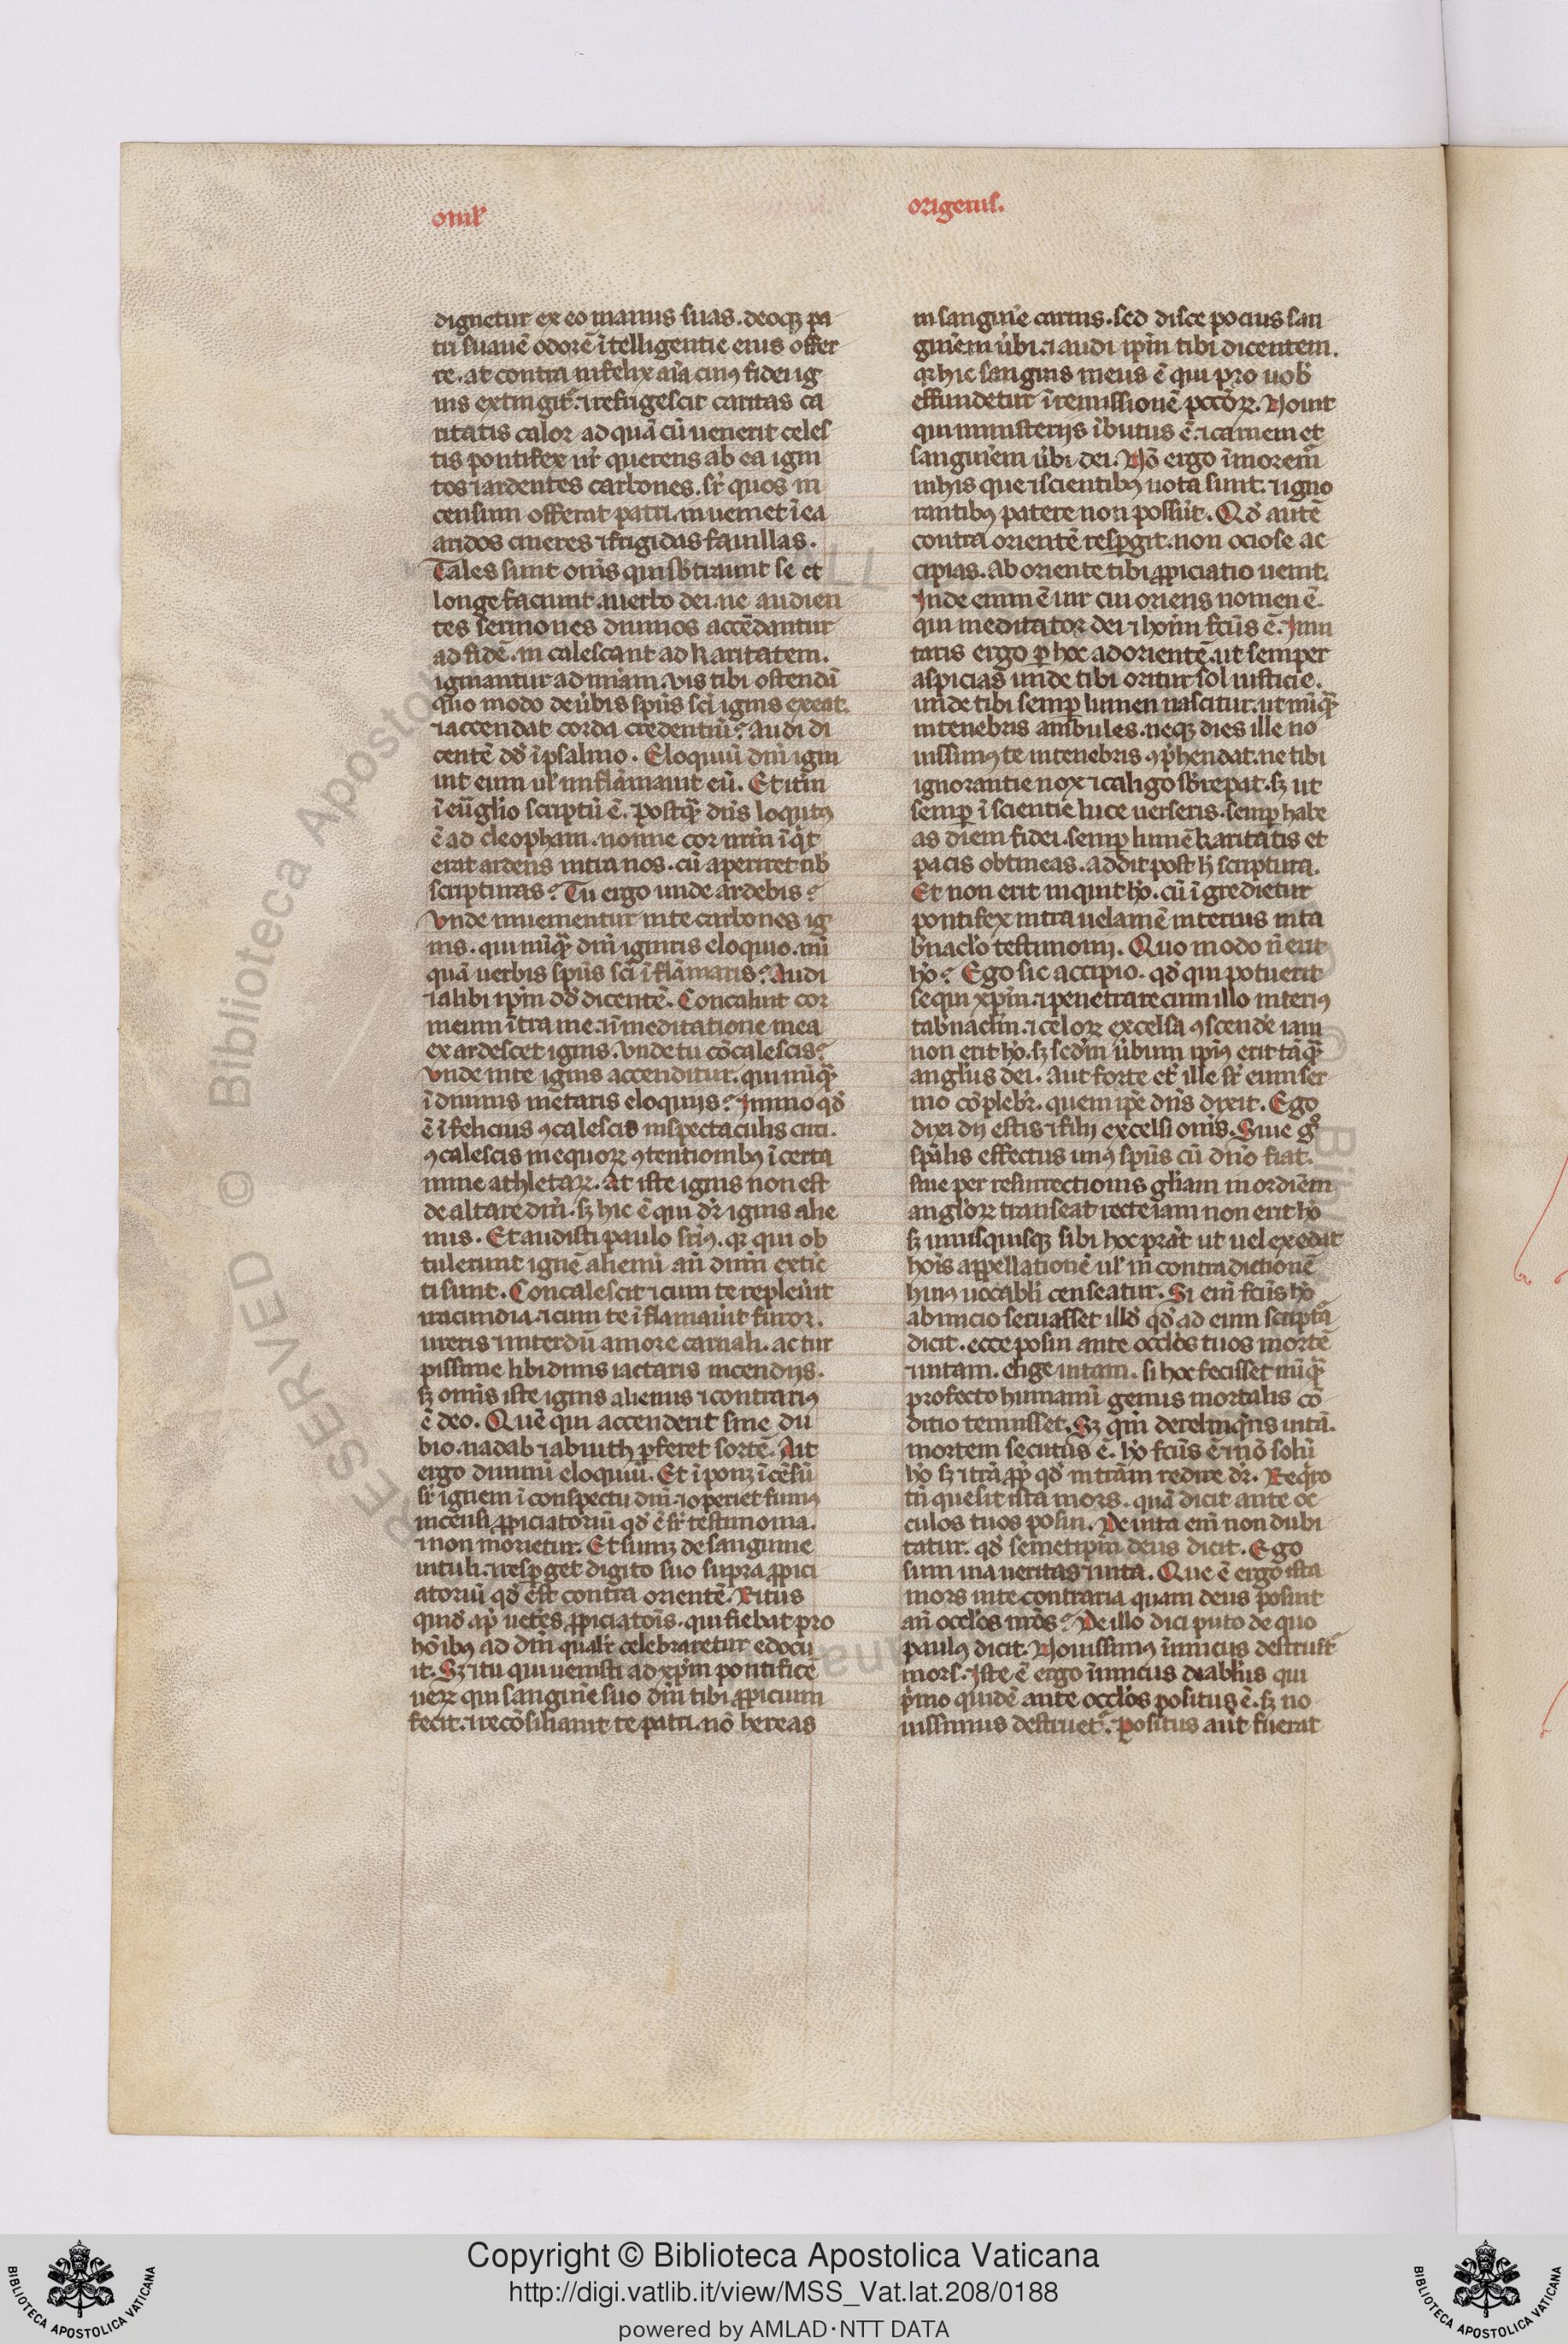 omẻł
origenis.
dignetur ex eo manus suas. deoqꝫ pa
tri suauē odorē ītelligentie eius offer
re. at contra infelix aīa cuiꝰ fidei ig
nis extingit᷑. ⁊ refrigescit caritas ca
ritatis calor ad quā cū uenerit celes
tis pontifex nr̄ querens ab ea igni
tos ⁊ ardentes carbones. sr̄ quos in
censum offerat patri. inueniet ī ea
aridos cineres ⁊ frigidas fauillas.
Tales sunt om̄s qui sb̄traunt se et
longe faciunt. auerbo dei. ne audien
tes sermones diuinos accēdantur
ad fidē. in calescant ad karitatem.
igniantur ad miām. vis tibi ostendā
quo modo de ūbis sp̄us sc̄i ignis exeat.
⁊ accendat corda credentiū? Audi di
centē dd̄ ī psalmo. Eloquiū dn̄i igni
uit eum ul̄ inflāmauit eū. Et itm̄
ī eūglio scriptū ē. postqᷓ dn̄s loqutꝰ
ē ad cleopham. nonne cor nrm̄ īqͥt
erat ardens intra nos. cū aperiret nb̄
scripturas? Tu ergo unde ardebis?
Vnde inuenientur inte carbones ig
nis. qui nūqᷓ dn̄i igniris eloquio. nū
quā uerbis sp̄us sc̄i īflāmaris? Audi
⁊ alibi ip̄m dd̄ dicentē. Concaluit cor
meum ītra me. ⁊ ī meditatione mea
ex ardescet ignis. Vnde tu cōcalescis?
Vnde inte ignis accenditur. qui nūqᷓ
ī diuinis mētaris eloquijs? Immo qd̄
ē īfelicius ꝯcalescis inspectaculis circi.
ꝯcalescis inequoꝝ ꝯtentionibꝰ ī certa
mine athletaꝝ. At iste ignis non est
de altare dn̄i. sꝫ hic ē qui dr̄ ignis alie
nus. Et audisti paulo sr̄iꝰ. qꝛ qui ob
tulerunt ignē alienū an̄ dn̄m extīc
ti sunt. Concalescit ⁊ cum te repleuīt
iracundia. ⁊ cum te īflamauit furor.
ureris ⁊ interdū amore carnali. ac tur
pissime libidinis iactaris incendijs.
sꝫ om̄is iste ignis alienus ⁊ contrariꝰ
ē deo. Quē qui accenderit sine du
bio. nadab ⁊ abiuth ꝑferet sortē. Ait
ergo diuinū eloquiū. Et īponꝫ īcēsū
sr̄ ignem ī conspectu dn̄i. ⁊ operiet fumꝰ
incensi ꝓpiciatoriū qd̄ ē sr̄ testimonia.
⁊ non morietur. Et sumꝫ de sanguine
uituli. ⁊ respget digito suo supra ꝓpici
atoriū qd̄ est contra orientē. Ritus
quid̄ ap̄ ueteꝭs ꝓpiciatōis. qui fiebat pro
hōibꝰ ad dm̄ qualit̄ celebraretur edocu
it. Sꝫ ⁊ tu qui uenisti ad xp̄m pontificē
ueꝝ qui sanguīe suo dm̄ tibi ꝓpicium
fecit. ⁊ recōsiliauit te patri. nō hereas
in sanguīe carnis. sed disce pocius san
guīem ūbi. ⁊ audi ip̄m tibi dicentem.
qꝛ hic sanguis meus ē qui pro uob̄
effundetur ī remissionē pccōꝝ. Nouit
qui ministerijs ībutus ē. ⁊ carnem et
sanguīem ūbi dei. Nō ergo īmorem̄
inhis que ⁊ scientibꝰ nota sunt. ⁊ igno
rantibꝰ patere non possūt. Qd̄ autē
contra orientē respgit. non ociose ac
cipias. Ab oriente tibi ꝓpiciatio uenit.
Inde enim ē uir cui oriens nomen ē.
qui meditator dei ⁊ hoīm fc̄us ē. Inui
taris ergo ꝑ hoc ad orientē. ut semper
aspicias unde tibi oritur sol iusticie.
unde tibi semꝑ lumen nascitur. ut nūqᷓ
intenebris ambules. neqꝫ dies ille no
uissimꝰ te intenebris ꝯp̄hendat. ne tibi
ignorantie nox ⁊ caligo sb̄repat. sꝫ ut
semꝑ ī scientie luce uerseris. semꝑ habe
as diem fidei. semꝑ lumē karitatis et
pacis obtineas. Addit post h̄ scriptura.
Et non erit inquit hō. cū īgredietur
pontifex intra uelamē interius inta
b̄naclo testimonij. Quo modo n̄ erit
hō? Ego sic accipio. qd̄ qui potuerit
sequi xp̄m. ⁊ penetrare cum illo interiꝰ
tab̄naclm̄. ⁊ celoꝝ excelsa ꝯscendē iam
non erit hō. sꝫ secdm̄ ūbum ipiꝰ erit tāqᷓ
anglus dei. Aut forte et̄ ille sr̄ eum ser
mo cōplebr̄. quem ip̄e dn̄s dixit. Ego
dixi dij estis ⁊ filij excelsi om̄s. Siue gͦ
sp̄alis effectus unꝰ sp̄us cū dn̄o fiat.
siue per resurrectionis gl̄iam in ordīem
angloꝝ transeat recte iam non erit hō
sꝫ unusquisqꝫ sibi hoc prāt ut uel excedat
hōis appellationē ul̄ in contradictionē
huiꝰ uocabli censeatur. Si em̄ fc̄us hō
abinicio seruasset illd̄ qd̄ ad eum scriptᷓa
dicit. ecce posui ante occlos tuos mortē
⁊ uitam. elige uitam. si hoc fecisset nūqᷓ
profecto humanū genus mortalis cō
ditio tenuisset. Sꝫ qm̄ derelinqͥns uitā.
mortem secutus ē. hō fc̄us ē ⁊ nō solū
hō sꝫ ⁊ trā ꝓp̄ qd̄ in trām redire dr̄. Reqͥro
tn̄ que sit ista mors. quā dicit ante oc
culos tuos posui. De uita em̄ non dubi
tatur. qd̄ semetipm̄ deus dicit. Ego
sum uia ueritas ⁊ uita. Que ē ergo ista
mors uite contraria quam deus posuit
an̄ occlos nrōs? De illo dici puto de quo
paulꝰ dicit. Nouissimꝰ īimicus destruet᷑
mors. Iste ē ergo īimicus diablus qui
pͥmo quidē ante occlos positus ē. sꝫ no
uissimus destruet᷑. Positus aūt fuerat
© Biblioteca Apostolica
RESERVED
ALL
Copyright © Biblioteca Apostolica Vaticana
http://digi.vatlib.it/view/MSS_Vat.lat.208/0188
powered by AMLAD·NTT DATA
BIBLIOTECA APOSTOLICA VATICANA
BIBLIOTECA APOSTOLICA VATICANA